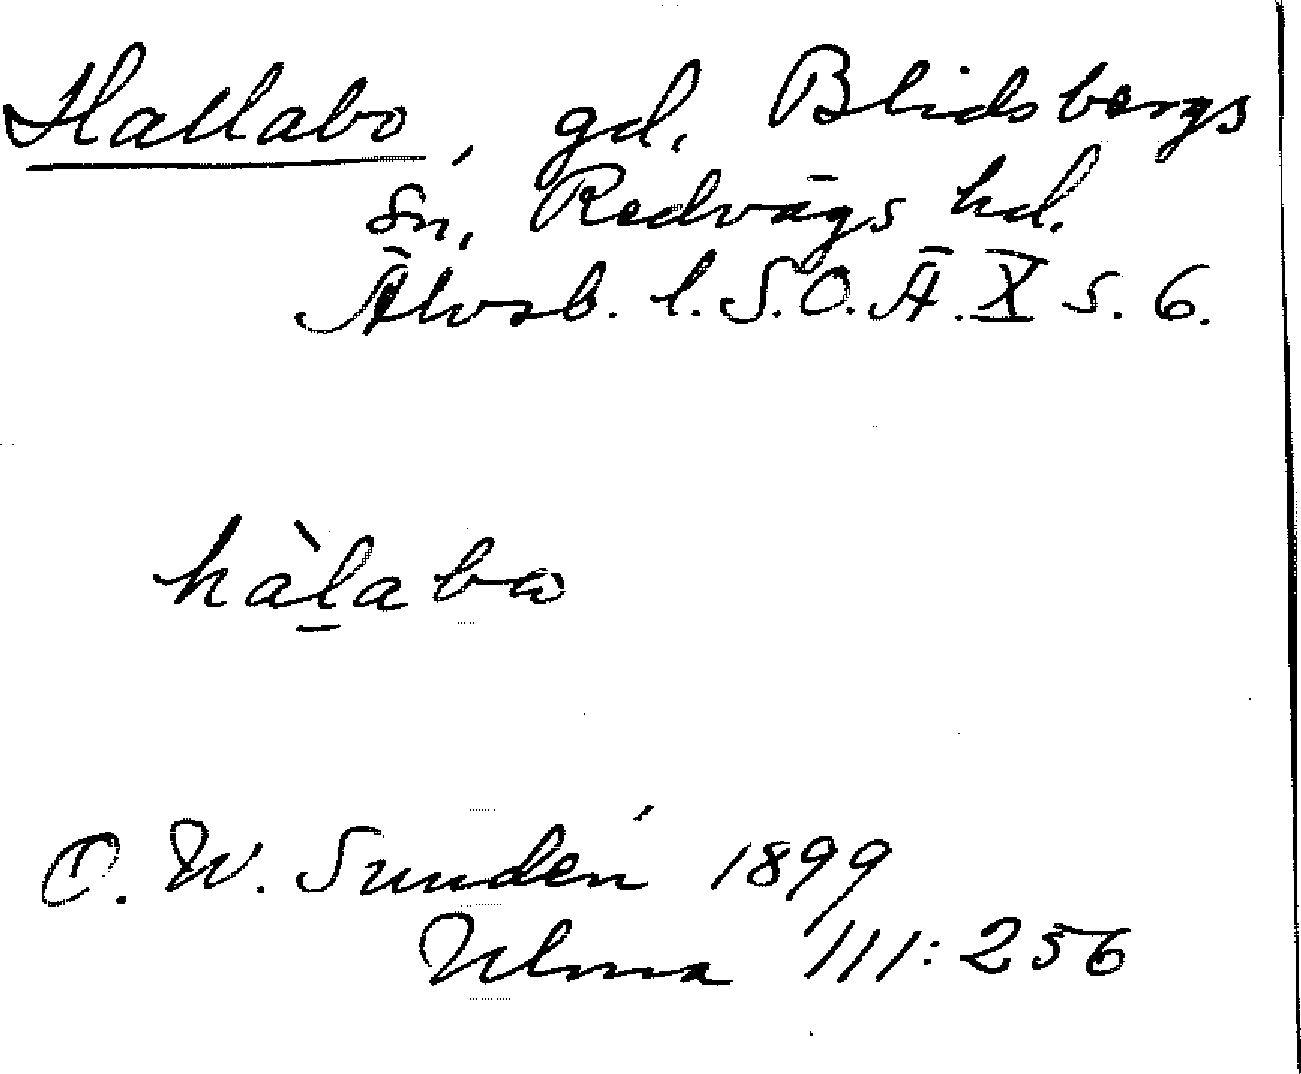 Hallabo, gd. Blidsbergs
sn, Redvägs hd.
Älvsb. l. S.O.Ä. X s. 6.
hàl̲abɷ
D. W. Sundén 1899
Ulma 111:256